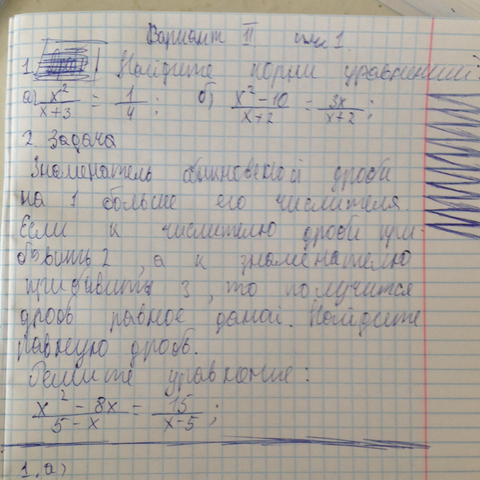 Вариант II
1. Найдите корни уравнений:
а) x²/x+3 = 1/4; б) x²-10/x+2 = 3x/x+2;
2. Задача
Знаменатель обыновенной дроби
на 1 больше его числителя.
Если к числителю дроби при-
бавить 2, а к знаменателю
прибавить 3, то получится
дробь равное даной. Найдите
равную дробь.
Решите уравнение:
x²-8x/5-x = 15/x-5;
1. а)